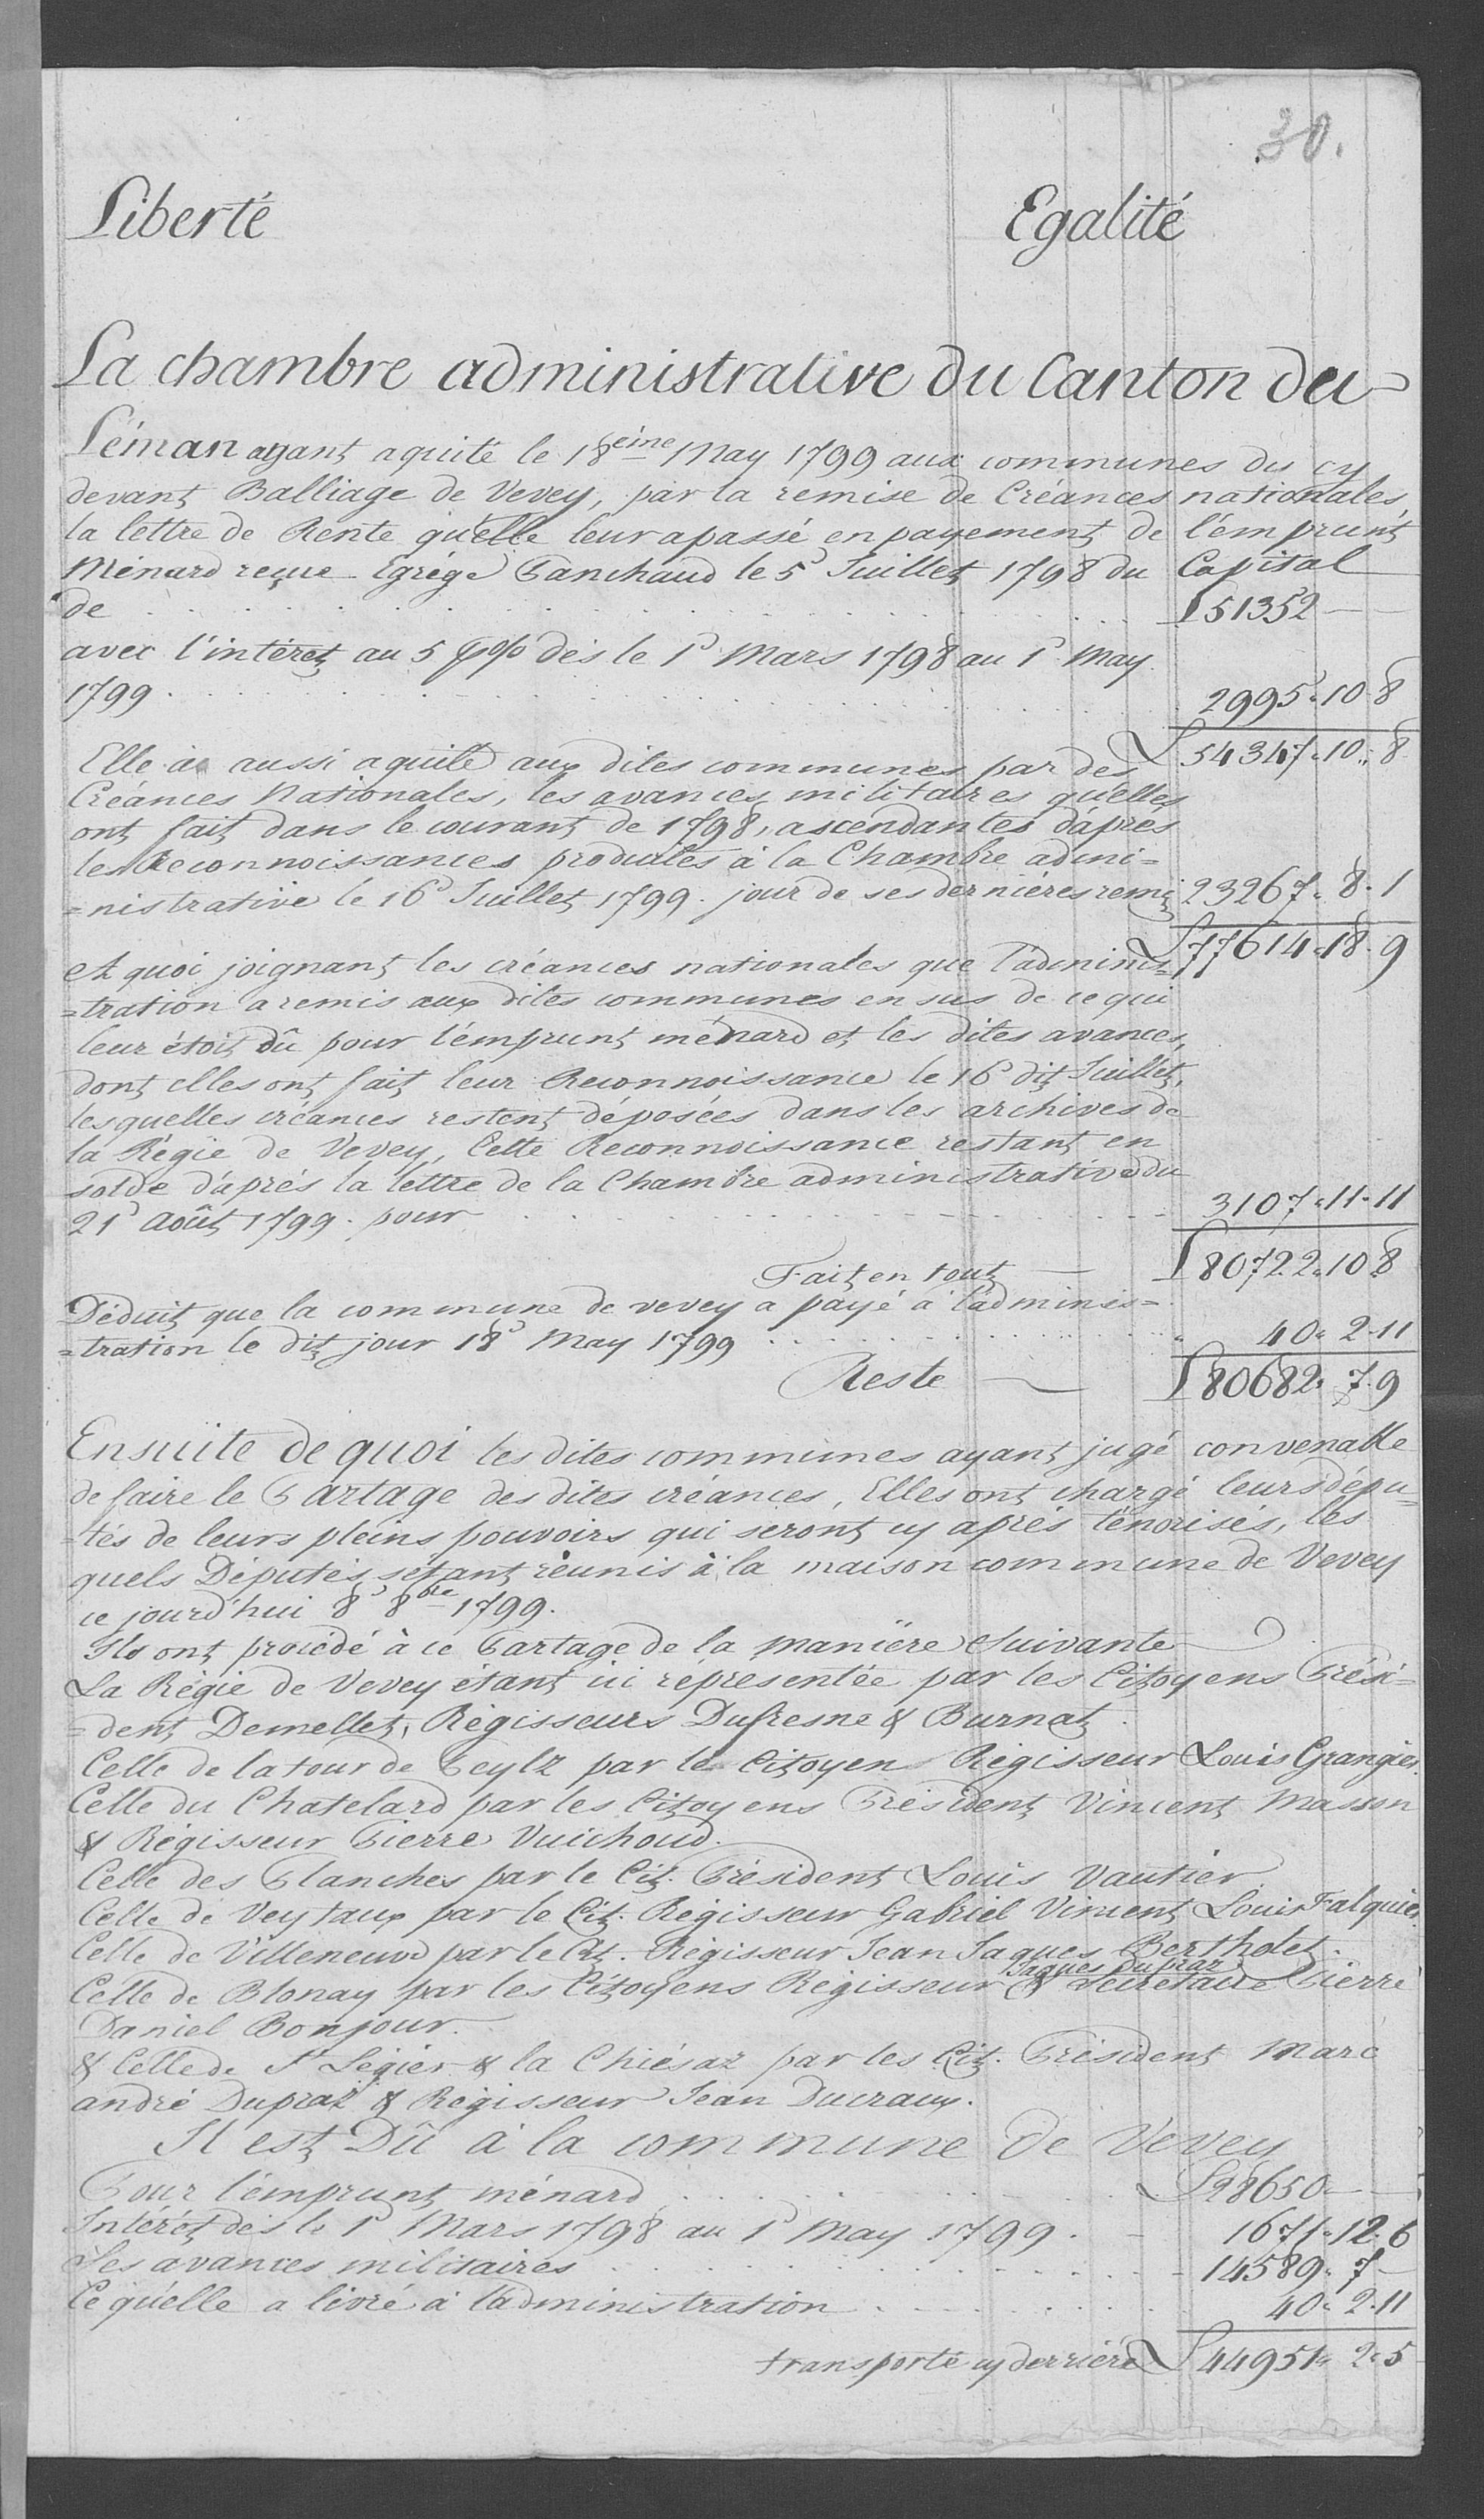 30.
Liberté Egalité
La chambre administrative du Canton du
Léman ayant aquité le 18ème May 1799 aux communes du cy
devant Balliage de Vevey, par la remise de Créances nationales,
la lettre de Rente qu'elle leur a passé en payement de l'emprunt
Ménard reçue Egrége Panchaud le 5e Juillet 1798 du Capital
de . . . . . . L 51352 — —
avec l'intéret au 5 p% dès le 1r Mars 1798 au 1r May
1799 . . . . . . 2995 " 10 " 8
L 54347 " 10 " 8
Elle a aussi aquité aux dites communes par des
Créances Nationales, les avances militaires qu'elles
ont fait dans le courant de 1798, ascendantes d'après
les Reconnoissances produites à la Chambre admi=
=nistrative le 16e Juillet 1799. jour de ses dernières remis 23267 " 8 " 1
L 77614 " 18 " 9
A quoi joignant les créances nationales que l'adminis=
=tration a remis aux dites communes en sus de ce qui
leur étoit dû pour l'emprunt ménard et les dites avances,
dont elles ont fait leur Reconnoissance le 16e dit Juillet,
lesquelles créances restent déposées dans les archives de
la Régie de Vevey, Cette Reconnoissance restant en
solde d'après la lettre de la Chambre administrative du
21e Août 1799. pour . . . . . . 3107 " 11 " 11
Fait en tout — L 80722 " 10 " 8
Déduit que la commune de vevey a payé à l'adminis=
=tration le dit jour 18e May 1799 . . . . . . 40 " 2 " 11
Reste — L 80682 " 7 " 9
Ensuite de quoi les dites communes ayant jugé convenable
de faire le Partage des dites créances, Elles ont chargé leurs dépu=
=tés de leurs pleins pouvoirs qui seront cy après ténorisés, les
quels Députés s'étant réunis à la maison commune de Vevey
ce jourd'hui 8e 8bre 1799.
Ils ont procédé à ce Partage de la manière Suivante
La Régie de Vevey étant ici réprésentée par les Citoyens Prési=
=dent Demellet, Régisseurs Dufresne & Burnat.
Celle de la tour de Peylz par le Citoyen Régisseur Louis Grangier.
Celle du Chatelard par les Citoyens Président Vincent Masson
& Régisseur Pierre Vuichoud.
Celle des Planches par le Cit. Président Louis Vautier.
Celle de Veytaux par le Cit. Régisseur Gabriel Vincent Louis Falquier.
Celle de Villeneuve par le Cit. Régisseur Jean Jaques Bertholet.
Jaques Dupraz
Celle de Blonay par les Citoyens Régisseur & Sécretaire Pierre
Daniel Bonjour.
& Celle de St Légier & la Chiésaz par les Cit. Président Marc
andré Dupraz & Régisseur Jean Ducraux.
Il est Dû à la commune de Vevey
Pour l'emprunt ménard . . . . . . L 28650 — —
Intérét dès le 1r Mars 1798 au 1r May 1799. — 1671 " 12 " 6
Ses avances militaires . . . . . . 14589 " 7 —
Ce qu'elle a livré à l'administration . . . . . . 40 " 2 " 11
transporté cy derrière L 44951 " 2 " 5